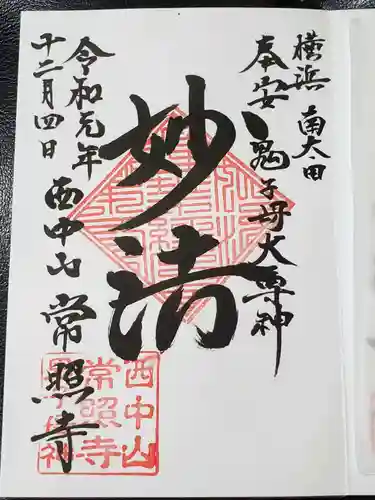 横浜 南太田
奉安 鬼子母大尊神
妙法
令和元年
十二月四日
西中山 常照寺
西中山
常照寺